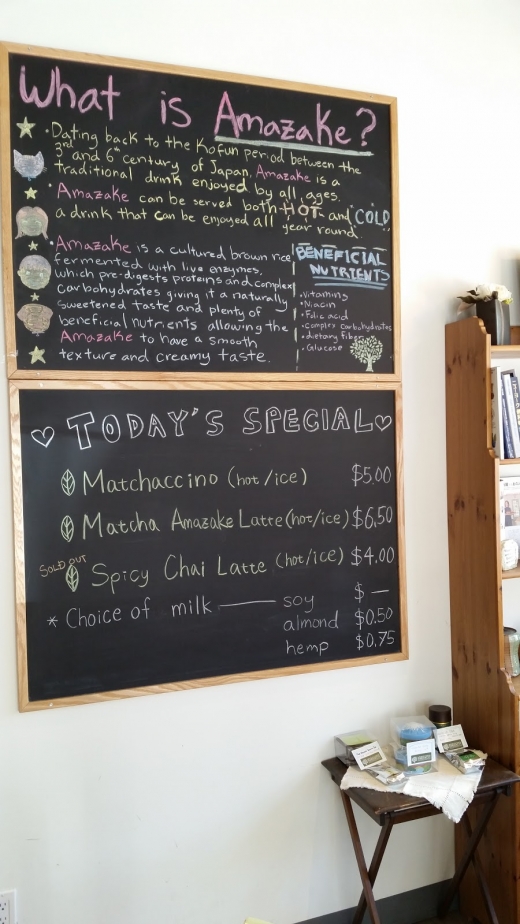 What is Amazake?
• Dating back to the Kofun period between the
3rd and 6th century of Japan, Amazake is a
traditional drink enjoyed by all ages.
• Amazake can be served both HOT and COLD
a drink that can be enjoyed all year round.
• Amazake is a cultured brown rice
fermented with live enzymes,
which pre-digests proteins and complex
carbohydrates giving it a naturally
sweetened taste and plenty of
beneficial nutrients allowing the
Amazake to have a smooth
texture and creamy taste.
BENEFICIAL
NUTRIENTS
• Vitamins
• Niacin
• Folic acid
• Complex Carbohydrates
• dietary fiber
• Glucose
TODAY'S SPECIAL
Matchaccino (hot/ice) $5.00
Matcha Amazake Latte (hot/ice) $6.50
SOLD OUT
Spicy Chai Latte (hot/ice) $4.00
* Choice of milk — soy $ —
almond $0.50
hemp $0.75